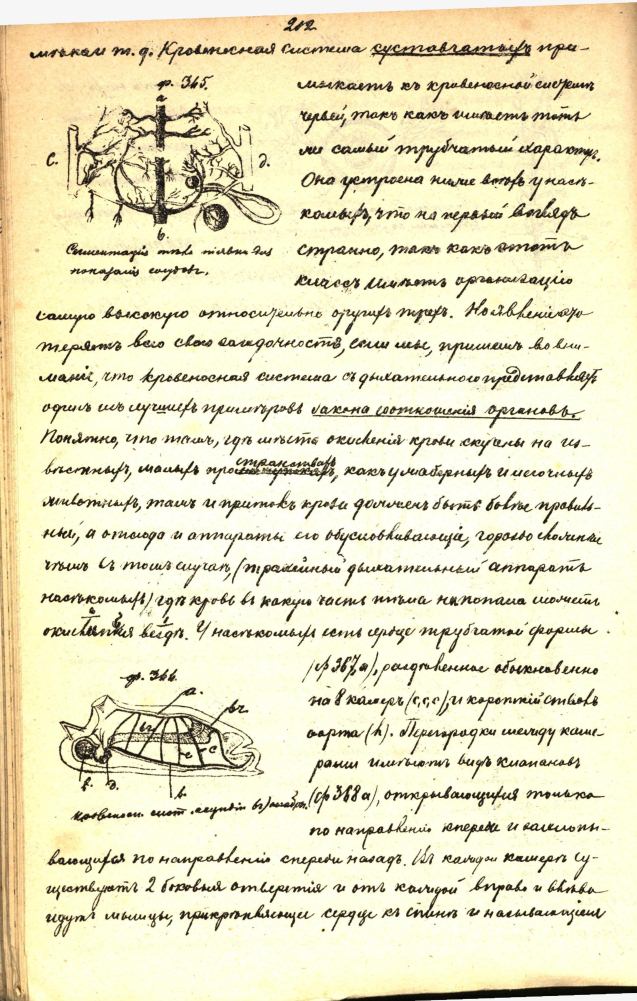 212
мыкам т. д. Кровеносная система суставчатыхъ при-
ф. 365.
а
с.
д.
b.
Сегментація тѣла пiявки для
показанія сосудовъ.
мыкаетъ къ кровеносной системѣ
червей, такъ какъ имѣетъ тотъ
же самый трубчатый характеръ.
Она устроена ниже всѣхъ у насѣ-
комыхъ, что на первый взглядъ
странно, такъ какъ этотъ
классъ имѣетъ организацію
самую высокую относительно другихъ трехъ. Но явленіе это
теряетъ всю свою загадочность, если мы, примемъ во вни-
маніе, что кровеносная система съ дыхательною представляетъ
одинъ изъ лучшихъ примѣровъ закона соотношенія органовъ.
Понятно, что тамъ, гдѣ мѣста окисленія крови скучены на из-
вѣстныхъ, малыхъ пространствахъ, какъ у жаберныхъ и легочныхъ
животныхъ, тамъ и притокъ крови долженъ быть болѣе правиль-
ный, а отсюда и аппараты его обусловливающіе, гораздо сложнѣе
чѣмъ въ томъ случаѣ, (трахейный дыхательный аппаратъ
насѣкомыхъ) гдѣ кровь въ какую часть тѣла ни попала можетъ
вездѣ. У насѣкомыхъ есть сердце трубчатой формы
ф. 366.
а.
br
br
с
с
f.
д.
b.
кровеносн. сист.
(ф 367, а), раздѣленное обыкновенно
на 8 камеръ (с, с, с), и короткій стволъ
аорта (h). Перегородки между каме-
рами имѣютъ видъ клапановъ
(ф 368 а), открывающихся только
по направленію кпереди и захлопы-
вающихся по направленію спереди назадъ. Въ каждой камерѣ су-
ществуютъ 2 боковыя отверстія и отъ каждой вправо и влѣво
идутъ мышцы, прикрѣпляющіе сердце къ спинѣ и называющіеся